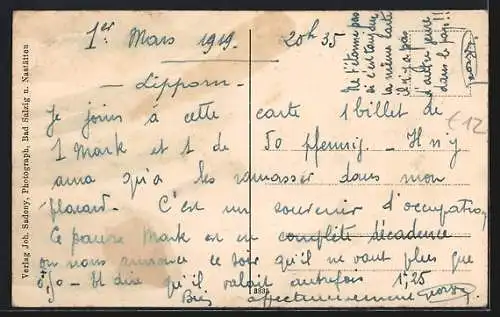 1er Mars 1919. 20h35
Lipporn
Ne t'étonne pas
si c'est toujours
la même carte
il n'y a pas
d'autre genre
dans le pays!!
€12
Je joins à cette carte 1 billet de
1 Mark et 1 de 50 pfennig - Il n'y
aura qu'à les ramasser dans mon
placard. C'est un souvenir d'occupation
Ce pauvre Mark est en complète décadence
on nous annonce ce soir qu'il ne vaut plus que
0,70 - Et dire qu'il valait autrefois 1,25
Bien affectueusement
Verlag Joh. Sadony, Photograph, Bad Salzig u. Nastätten